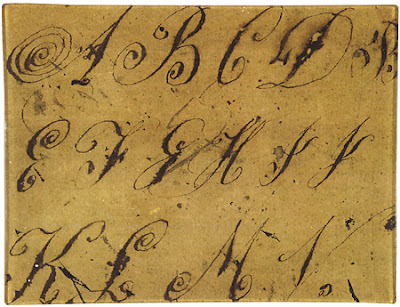 A B C D B
E F G H I J
K L M N